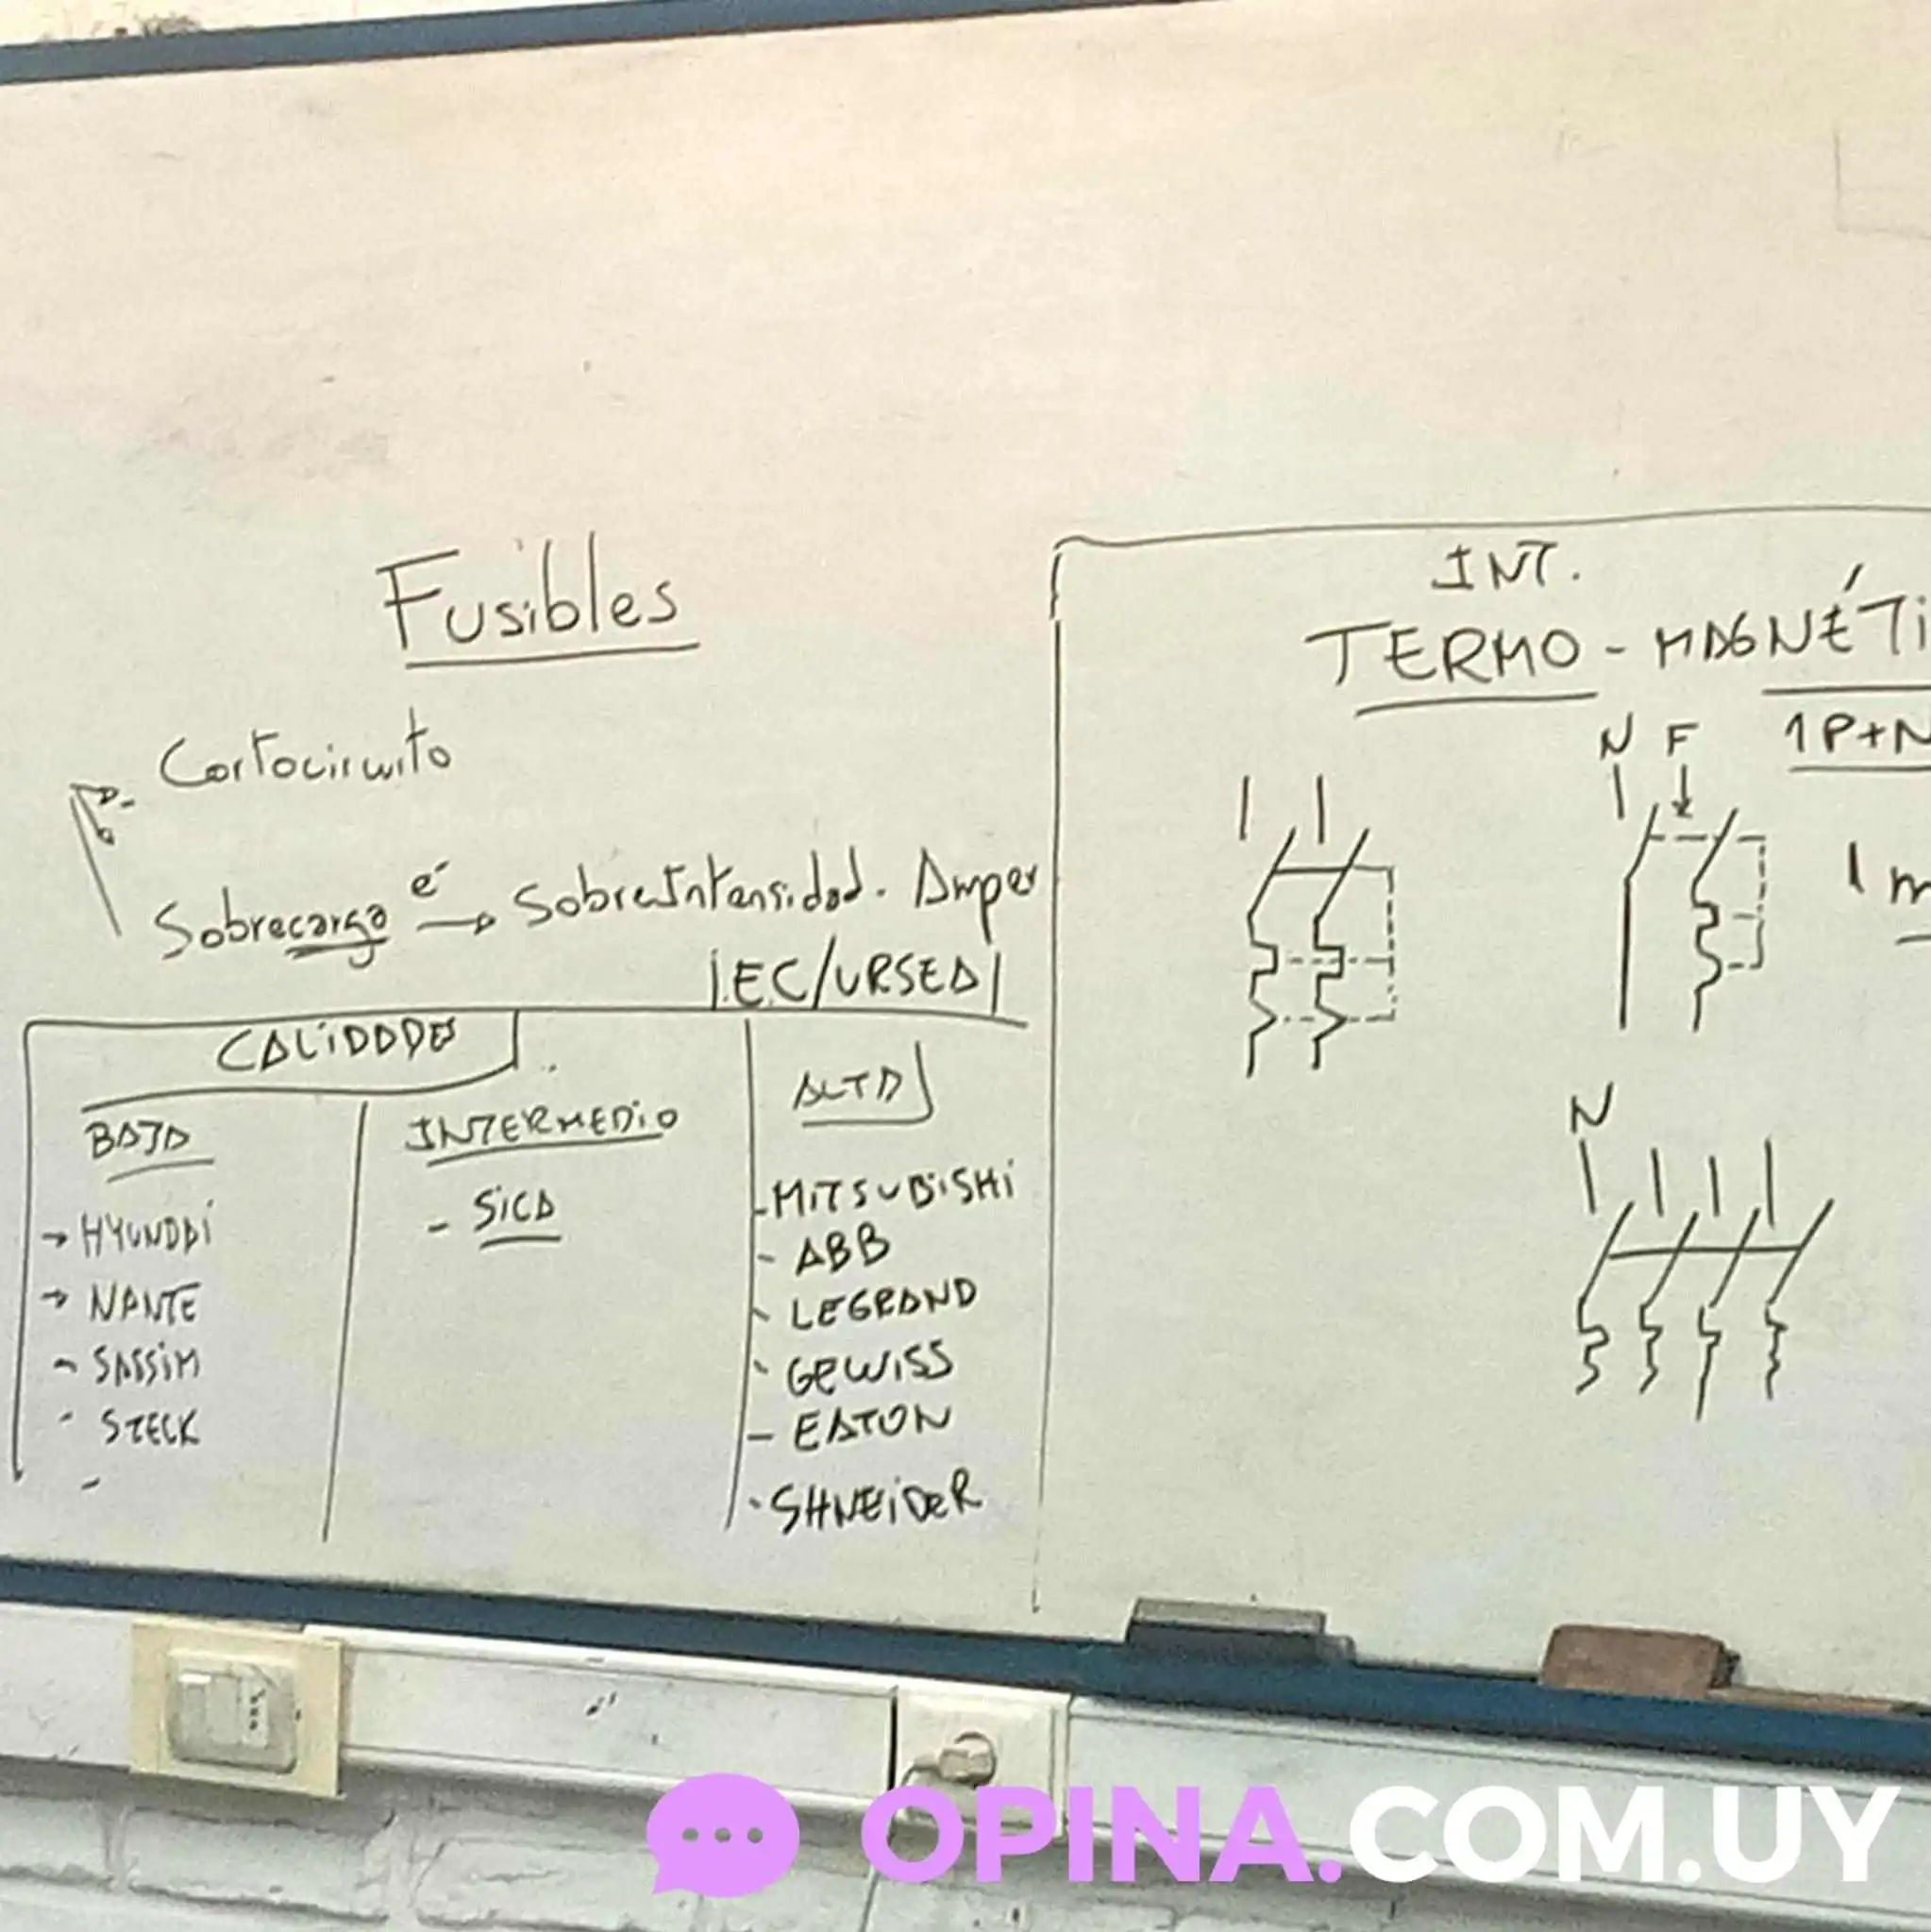 Fusibles
Cortocircuito
Sobrecarga é → Sobreintensidad. Amper
I.E.C/URSEA
CALIDADES
BAJA
→ HYUNDAI
→ NANTE
- SASSIM
- STECK
-
INTERMEDIO
- SICA
ALTA
- MITSUBISHI
- ABB
- LEGRAND
- GEWISS
- EATON
- SHNEIDER
INT.
TERMO - MAGNÉTI
N F 1P+N
1 m
N
OPINA.COM.UY